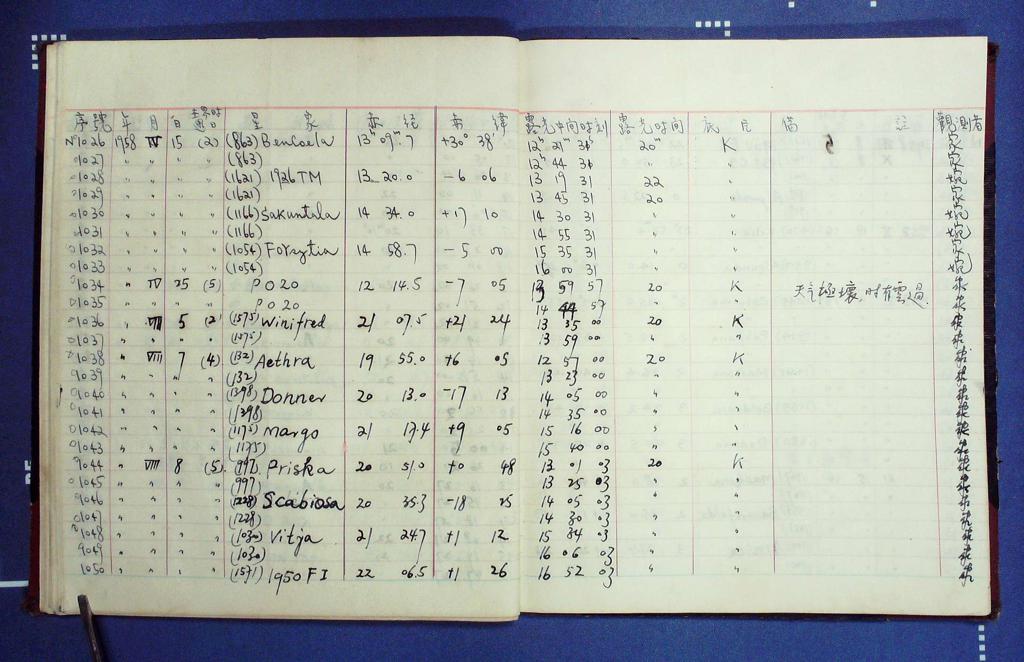 序號 年 月 日 世界時 週日 星 象 赤 經 赤 緯 露光中間時刻 露光時間 底 片 備 註 觀測者
№1026 1958 IV 15 (2) (863) Benkoela 13ʰ 09ᵐ.7 +30° 38' 12ʰ 21ᵐ 31 20ᵐ K 家
1027 " " " (863) 12 44 31 " " 家
1028 " " " (1621) 1926 TM 13 20.0 -6 06 13 19 31 22 " 婉
1029 " " " (1621) 13 45 31 20 " 家
1030 " " " (1166) Sakuntala 14 34.0 +17 10 14 30 31 " " 婉
1031 " " " (1166) 14 55 31 " " 婉
1032 " " " (1054) Forsytia 14 58.7 -5 00 15 35 31 " " 家
1033 " " " (1054) 16 00 31 " " 婉
1034 " IV 25 (5) PO20 12 14.5 -7 05 13 59 57 20 K 天气極壞,时有雲過.
1035 " " " PO20 14 44 57 " "
1036 " VIII 5 (2) (1575) Winifred 21 07.5 +21 24 13 35 00 20 K
1037 " " " (1575) 13 59 00 " "
1038 " VIII 7 (4) (132) Aethra 19 55.0 +6 05 12 57 00 20 K
1039 " " " (132) 13 23 00 " "
1040 " " " (1398) Donner 20 13.0 -17 13 14 05 00 " "
1041 " " " (1398) 14 35 00 " "
1042 " " " (1175) Margo 21 17.4 +9 05 15 16 00 " "
1043 " " " (1175) 15 40 00 " "
1044 " VIII 8 (5) (997) Priska 20 51.0 +0 48 13 01 03 20 K
1045 " " " (997) 13 25 03 " "
1046 " " " (1228) Scabiosa 20 35.3 -18 25 14 05 03 " "
1047 " " " (1228) 14 30 03 " "
1048 " " " (1030) Vitja 21 24.7 +1 12 15 34 03 " "
1049 " " " (1030) 16 06 03 " "
1050 " " " (1571) 1950 FJ 22 06.5 +1 26 16 52 03 " "